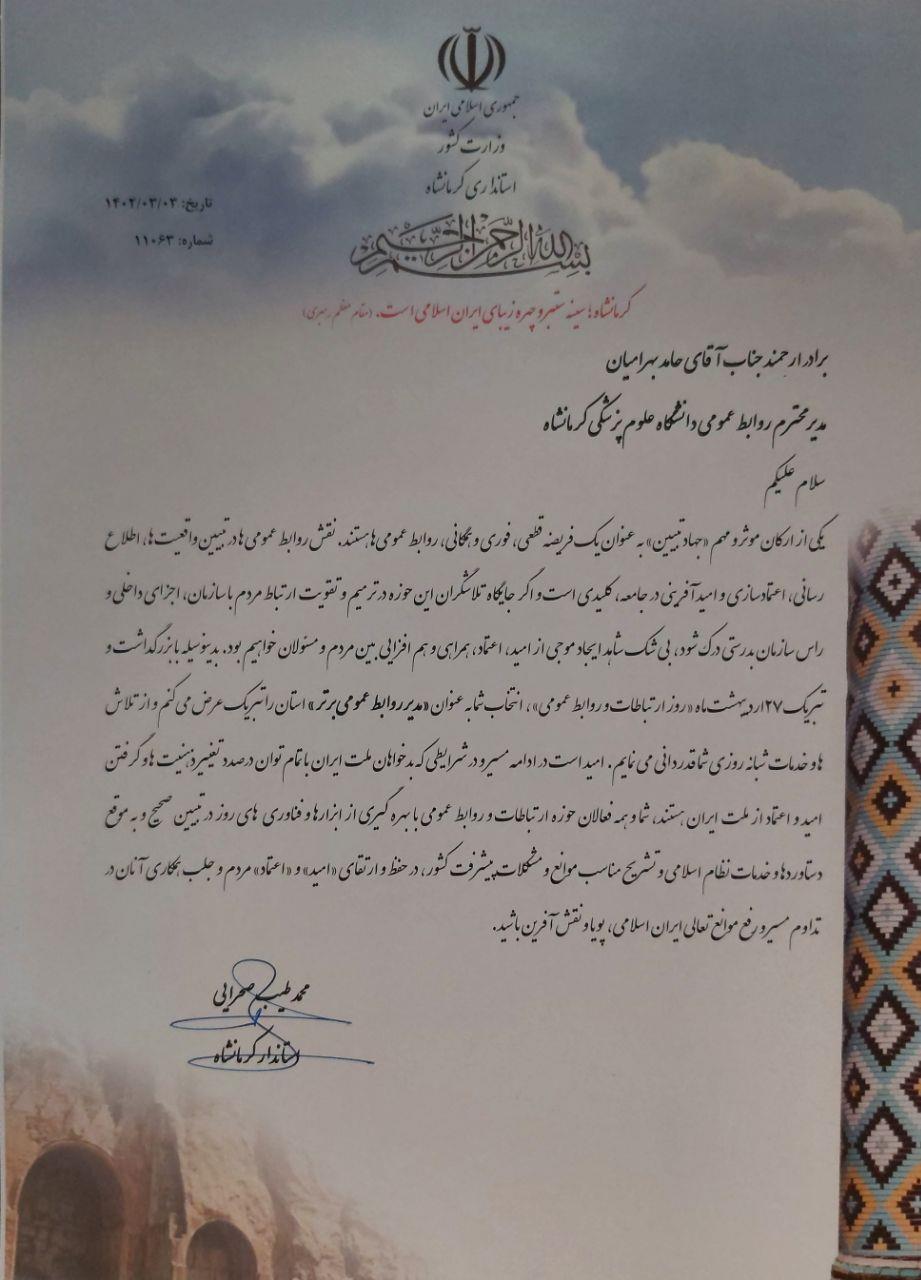 جمهوری اسلامی ایران
وزارت کشور
استانداری کرمانشاه
تاریخ: ۱۴۰۲/۰۳/۰۳
شماره: ۱۱۰۶۳
بسم الله الرحمن الرحیم
کرمانشاه؛ سینه ستبر و چهره زیبای ایران اسلامی است. (مقام معظم رهبری)
برادر ارجمند جناب آقای حامد بهرامیان
مدیر محترم روابط عمومی دانشگاه علوم پزشکی کرمانشاه
سلام علیکم
یکی از ارکان موثر و مهم «جهاد تبیین» به عنوان یک فریضه قطعی، فوری و همگانی، روابط عمومی ها هستند. نقش روابط عمومی ها در تبیین واقعیت ها، اطلاع
رسانی، اعتمادسازی و امیدآفرینی در جامعه، کلیدی است و اگر جایگاه تلاشگران این حوزه در ترمیم و تقویت ارتباط مردم با سازمان، اجزای داخلی و
راس سازمان بدرستی درک شود، بی شک شاهد ایجاد موجی از امید، اعتماد، همراهی و هم افزایی بین مردم و مسئولان خواهیم بود. بدینوسیله با بزرگداشت و
تبریک ۲۷ اردیبهشت ماه «روز ارتباطات و روابط عمومی»، انتخاب شما به عنوان «مدیر روابط عمومی برتر» استان را تبریک عرض می کنم و از تلاش
ها و خدمات شبانه روزی شما قدردانی می نمایم. امید است در ادامه مسیر و در شرایطی که بدخواهان ملت ایران با تمام توان درصدد تغییر ذهنیت ها و گرفتن
امید و اعتماد از ملت ایران هستند، شما و همه فعالان حوزه ارتباطات و روابط عمومی با بهره گیری از ابزارها و فناوری های روز در تبیین صحیح و به موقع
دستاوردها و خدمات نظام اسلامی و تشریح مناسب موانع و مشکلات پیشرفت کشور، در حفظ و ارتقای «امید» و «اعتماد» مردم و جلب همکاری آنان در
تداوم مسیر و رفع موانع تعالی ایران اسلامی، پویا و نقش آفرین باشید.
محمد طیب صحرایی
استاندار کرمانشاه